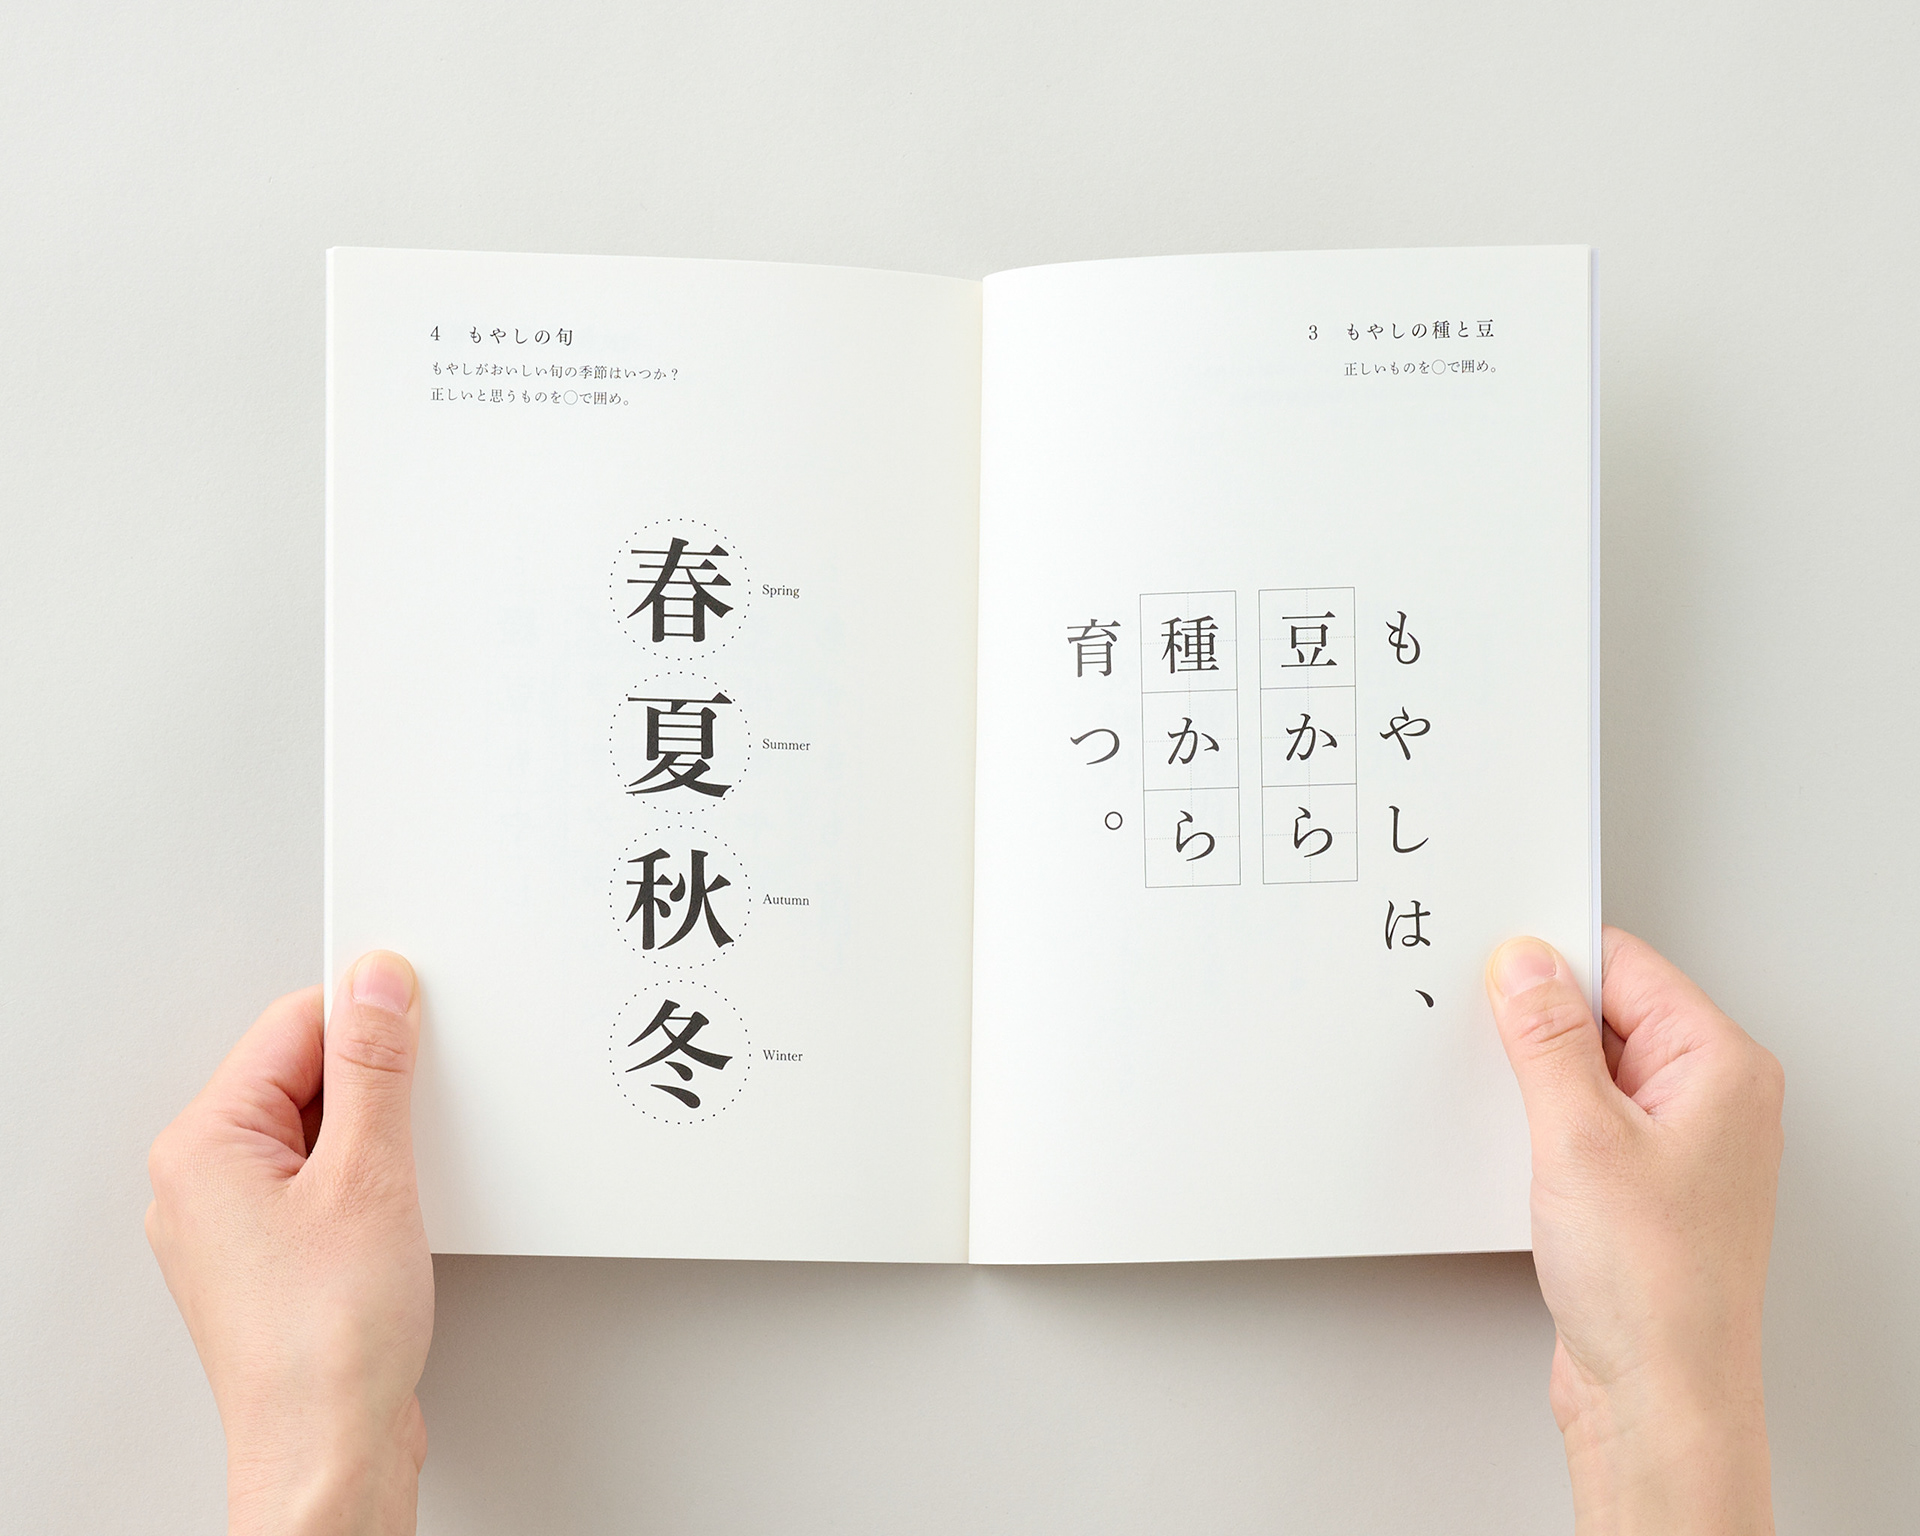 3 もやしの種と豆
正しいものを◯で囲め。
もやしは、
豆から
種から
育つ。
4 もやしの旬
もやしがおいしい旬の季節はいつか？
正しいと思うものを◯で囲め。
春 Spring
夏 Summer
秋 Autumn
冬 Winter